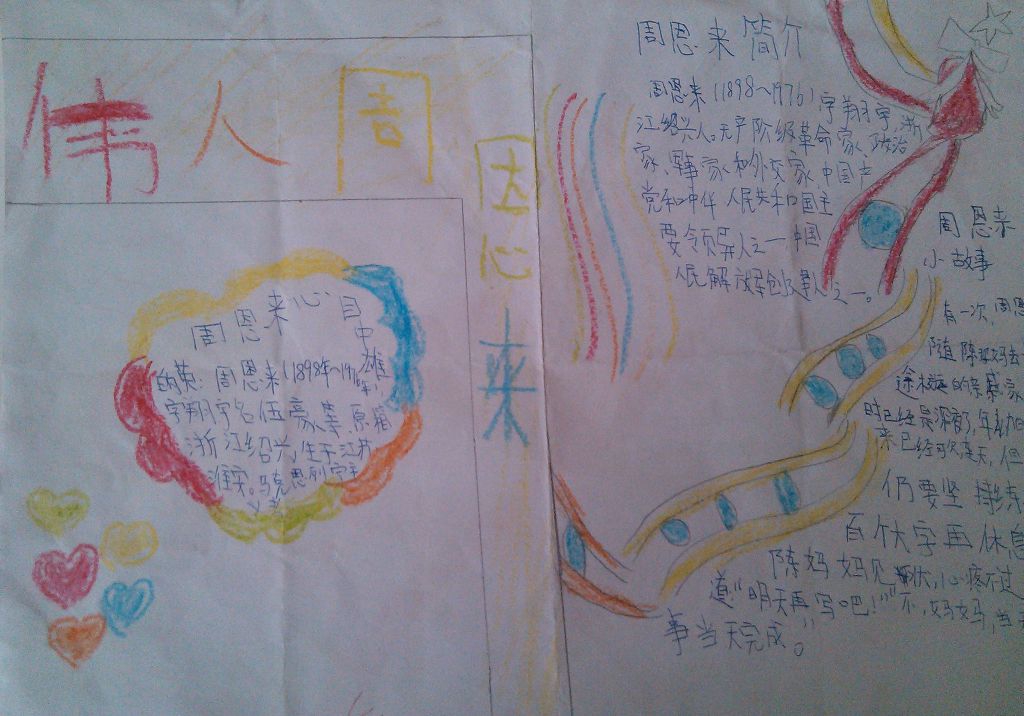 伟人周
因心来
周恩来心目
中
的英雄：周恩来（1898年～1976年）
字翔宇名伍豪等，原籍
浙江绍兴，生于江苏
淮安。马克思列宁主
义者
周恩来简介
周恩来（1898～1976）字翔宇，浙
江绍兴人。无产阶级革命家、政治
家、军事家和外交家，中国共产
党和中华人民共和国主
要领导人之一，中国
人民解放军创建人之一。
周恩来
小故事
有一次，周恩
随陈妈妈去
途
时已经是深夜了，年幼的
来已经可欠连天，但
仍要坚持练
百个大字再休息
陈妈妈见状，心疼不过
道“明天再写吧！”“不，妈妈，当天
事当天完成。